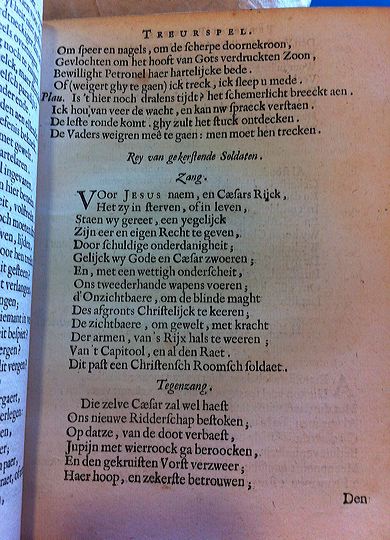 TREURSPEL.
Om speer en nagels, om de scherpe doornekroon,
Gevlochten om het hooft van Gots verdruckten Zoon,
Bewillight Petronel haer hartelijcke bede.
Of (weigert ghy te gaen) ick treck, ick sleep u mede.
Plau. Is 't hier noch dralens tijdt? het schemerlicht breeckt aen.
Ick hou van veer de wacht, en kan uw spraeck verstaen.
De leste ronde komt. ghy zult het stuck ontdecken.
De Vaders weigren meê te gaen: men moet hen trecken.
Rey van gekerstende Soldaten.
Zang.
VOor JESUS naem, en Cæsars Rijck,
Het zy in sterven, of in leven,
Staen wy gereet, een yegelijck
Zijn eer en eigen Recht te geven,
Door schuldige onderdanigheit;
Gelijck wy Gode en Cæsar zwoeren;
En, met een wettigh onderscheit,
Ons tweederhande wapens voeren;
d'Onzichtbaere, om de blinde maght
Des afgronts Christelijck te keeren;
De zichtbaere, om gewelt, met kracht
Der armen, van 's Rijx hals te weeren;
Van 't Capitool, en al den Raet.
Dit past een Christensch Roomsch soldaet.
Tegenzang.
Die zelve Cæsar zal wel haest
Ons nieuwe Ridderschap bestoken;
Op datze, van de doot verbaest,
Jupijn met wierroock ga beroocken,
En den gekruisten Vorst verzweer;
Haer hoop, en zekerste betrouwen;
Den